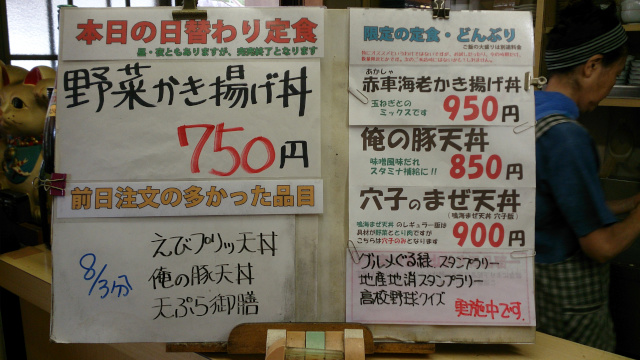 本日の日替わり定食
昼・夜ともありますが、完売終了となります
野菜かき揚げ丼
750円
前日注文の多かった品目
8/3分
えびプリッツ天丼
俺の豚天丼
天ぷら御膳
限定の定食・どんぶり
ご飯の大盛りは別途料金
あかしゃ
赤車海老かき揚げ丼
玉ねぎとの
ミックスです
950円
俺の豚天丼
味噌風味だれ
スタミナ補給に!!
850円
穴子のまぜ天丼
(鳴海まぜ天丼 穴子版)
鳴海まぜ天丼 のレギュラー版は
具材が野菜ととり肉ですが
こちらは穴子のみとなります
900円
グルメぐる緑、スタンプラリー
地産地消スタンプラリー
高校野球クイズ
実施中です。